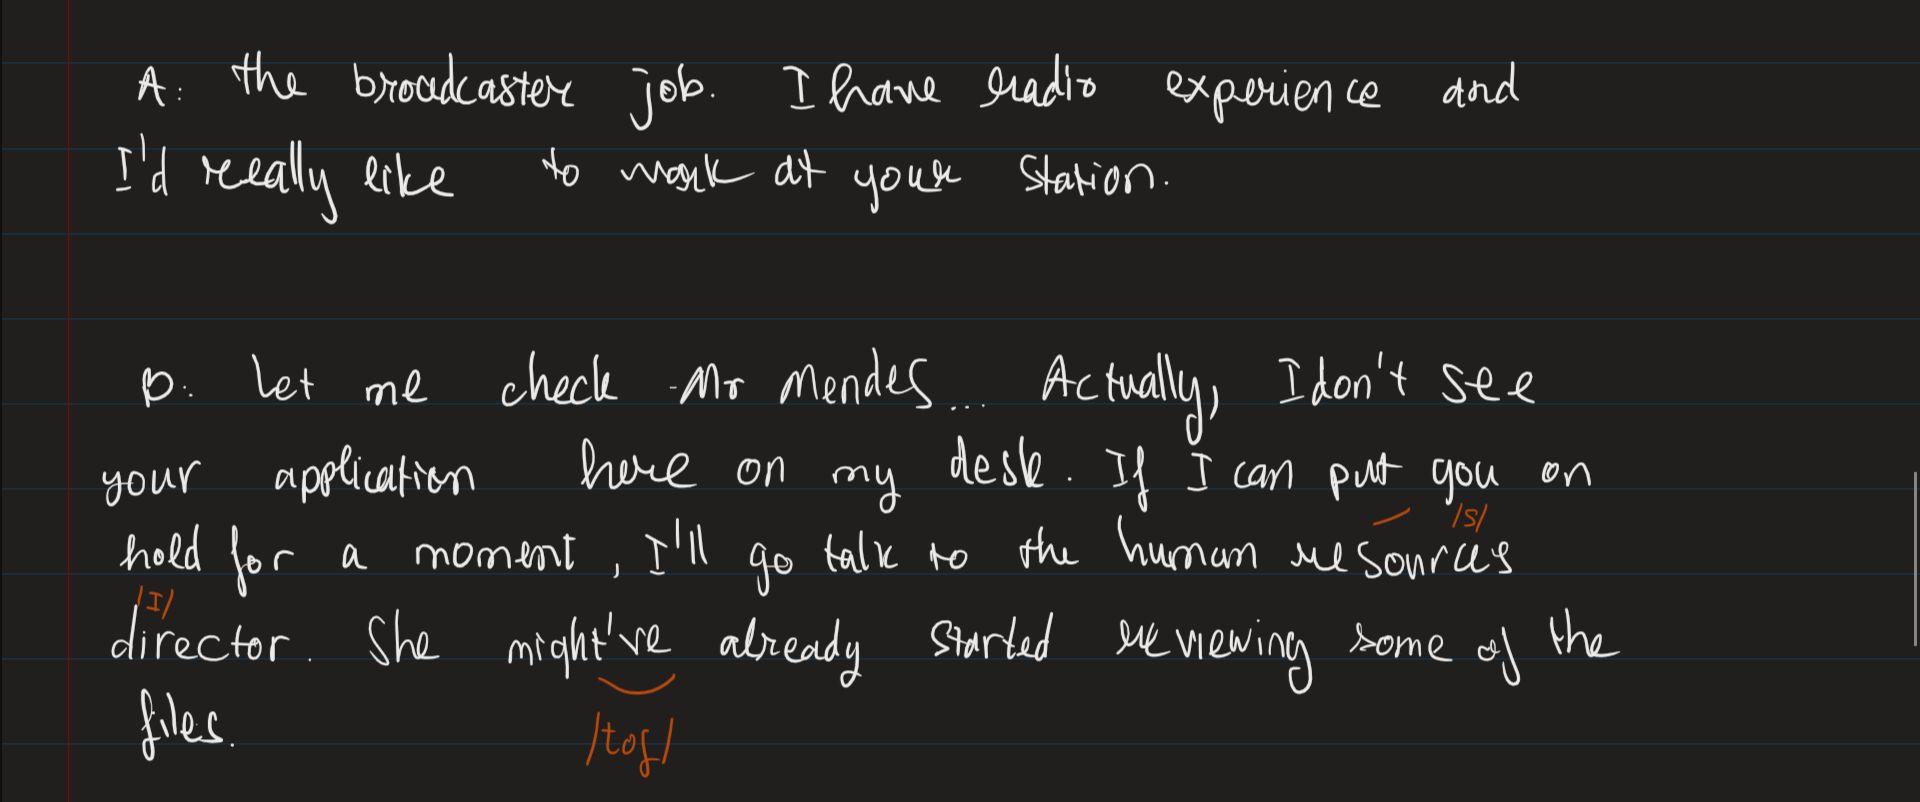 A: the broadcaster job. I have radio experience and
I'd really like to work at your station.
B: Let me check Mr Mendes... Actually, I don't see
your application here on my desk. If I can put you on
/s/
hold for a moment, I'll go talk to the human resources
/I/
director. She might've already started reviewing some of the
files.
/tof/